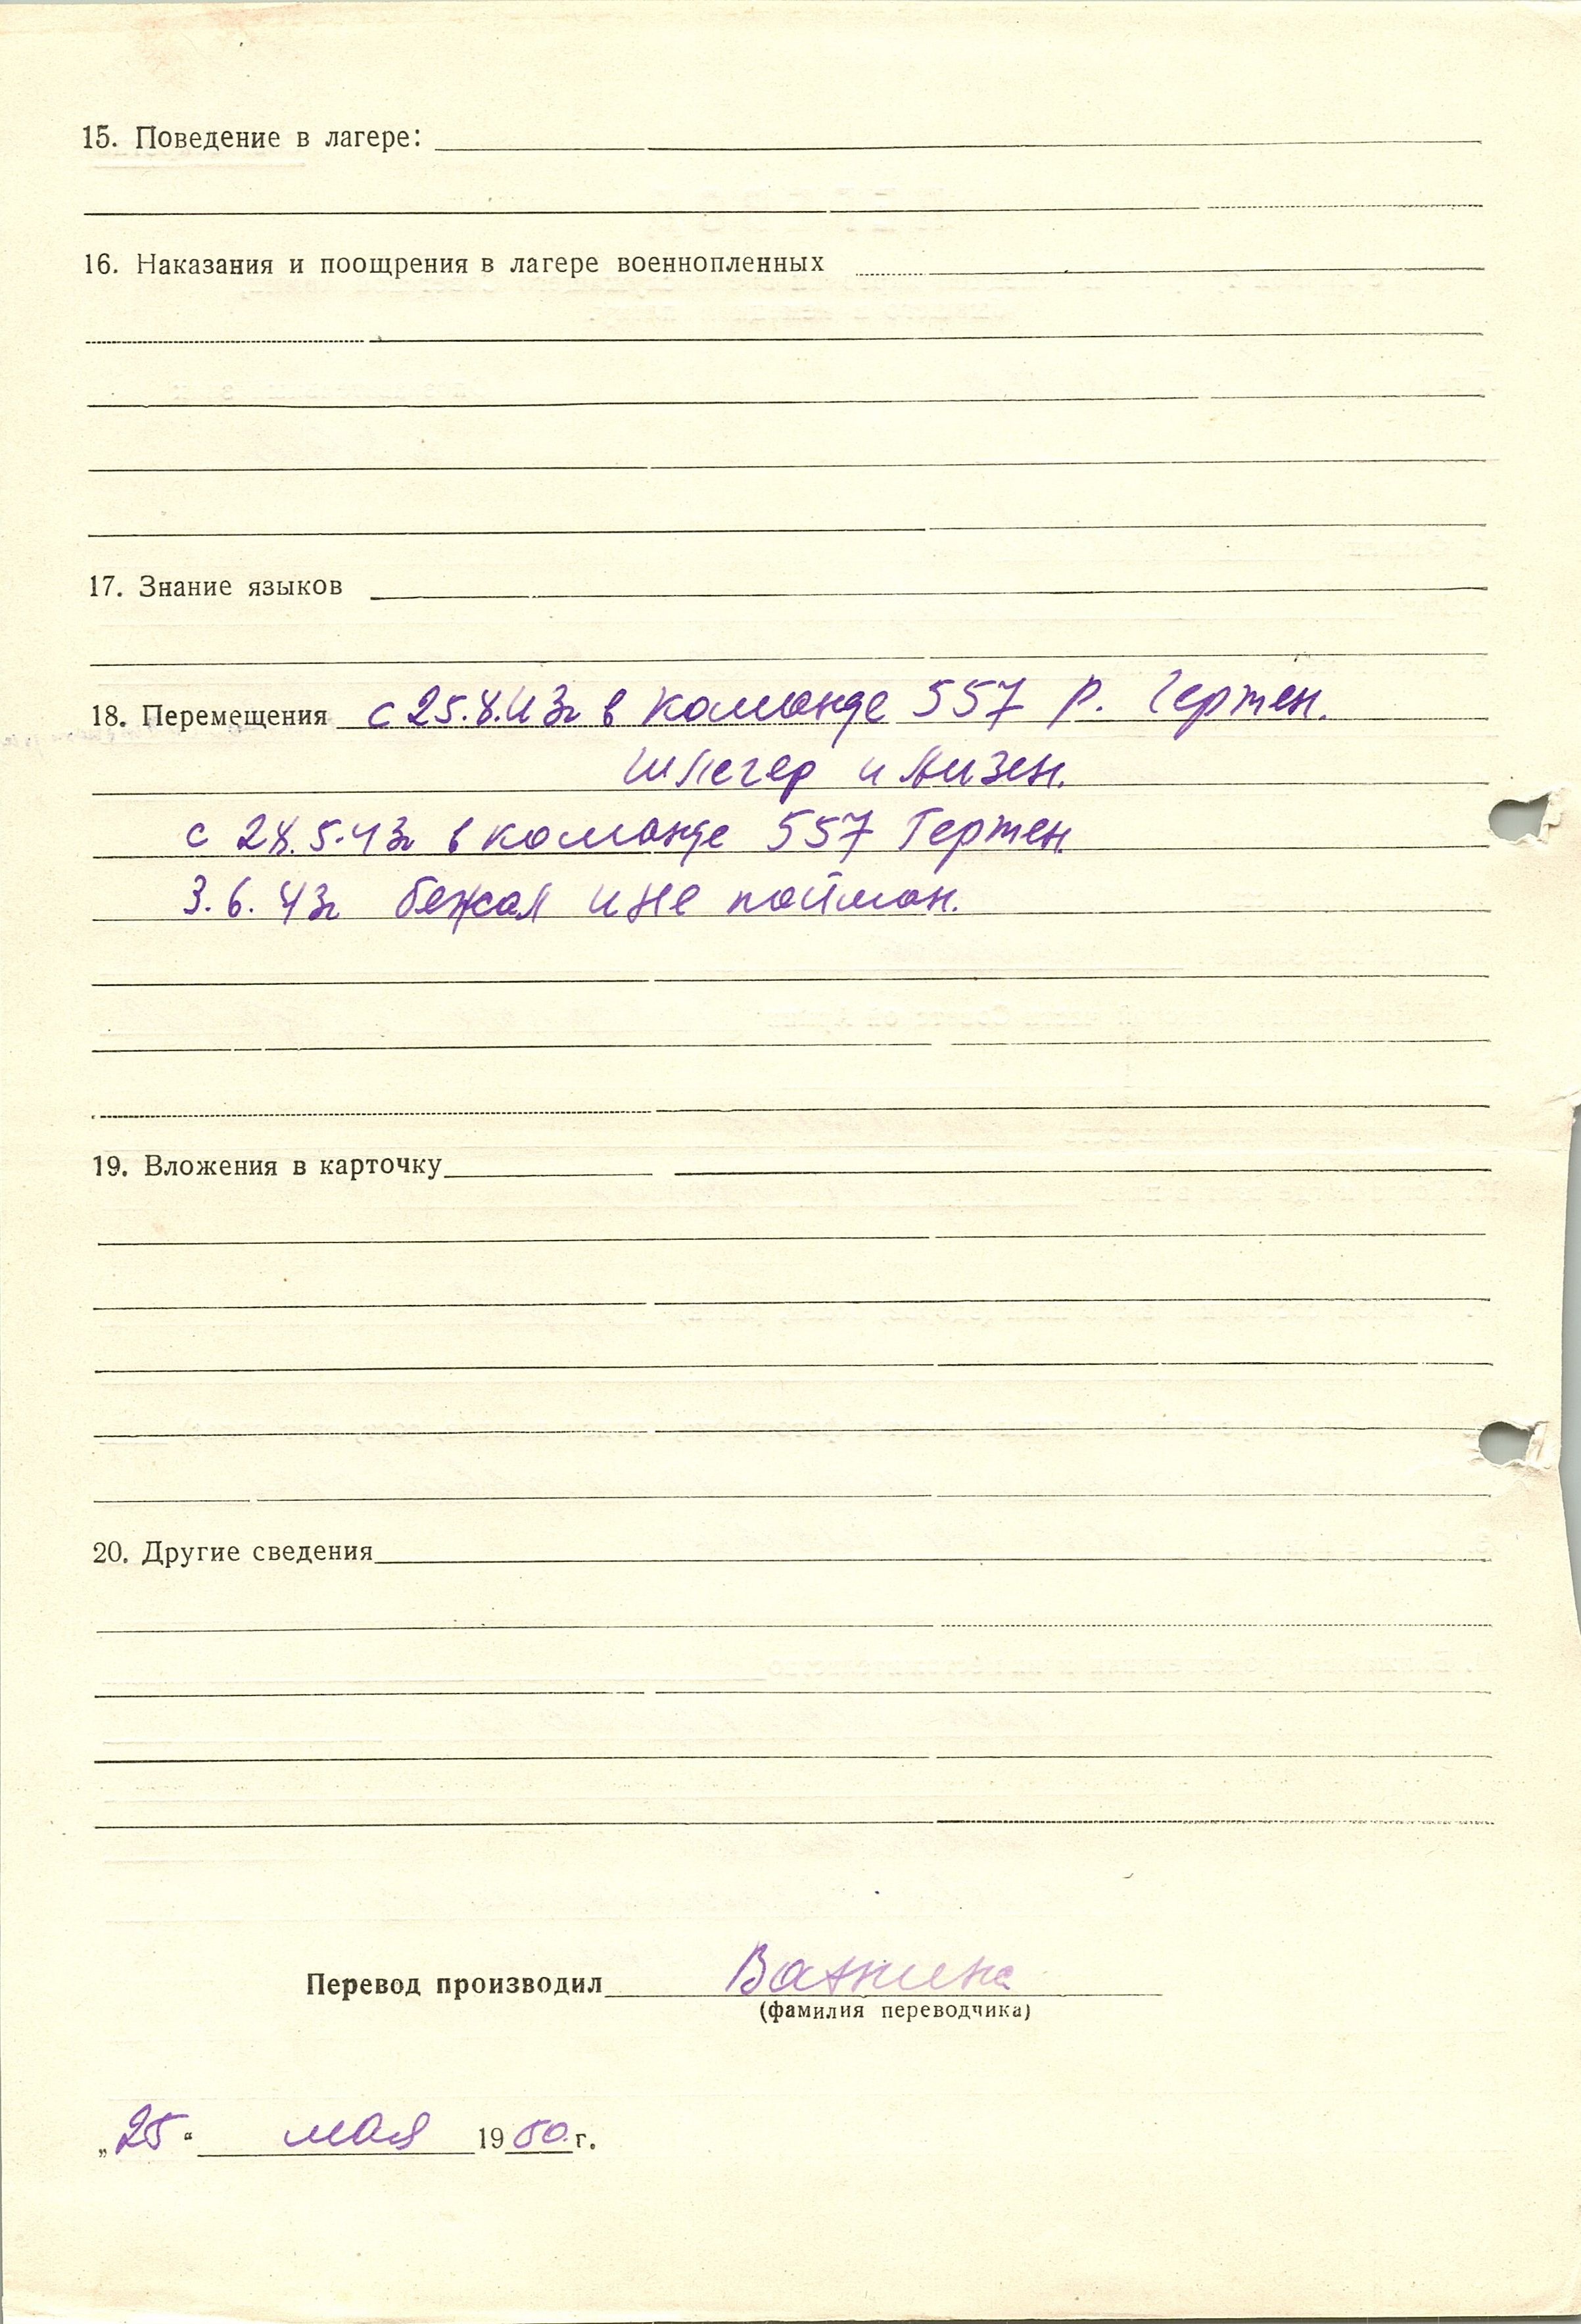 15. Поведение в лагере:
16. Наказания и поощрения в лагере военнопленных
17. Знание языков
18. Перемещения с 25.8.43г в команде 557 р. Гертен.
Шлегер и Лизен.
с 28.5.43г в команде 557 Гертен.
3.6.43г бежал и не пойман.
19. Вложения в карточку
20. Другие сведения
Перевод производил
(фамилия переводчика)
„25“ мая 1950 г.